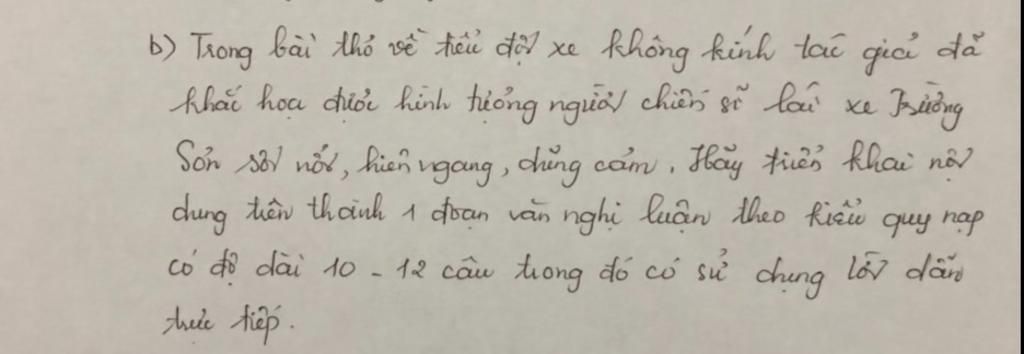 b) Trong bài thơ về tiểu đội xe không kính tác giả đã
khắc họa được hình tượng người chiến sĩ lái xe Trường
Sơn sôi nổi, hiên ngang, dũng cảm. Hãy triển khai nội
dung trên thành 1 đoạn văn nghị luận theo kiểu quy nạp
có độ dài 10 - 12 câu trong đó có sử dụng lời dẫn
trực tiếp.